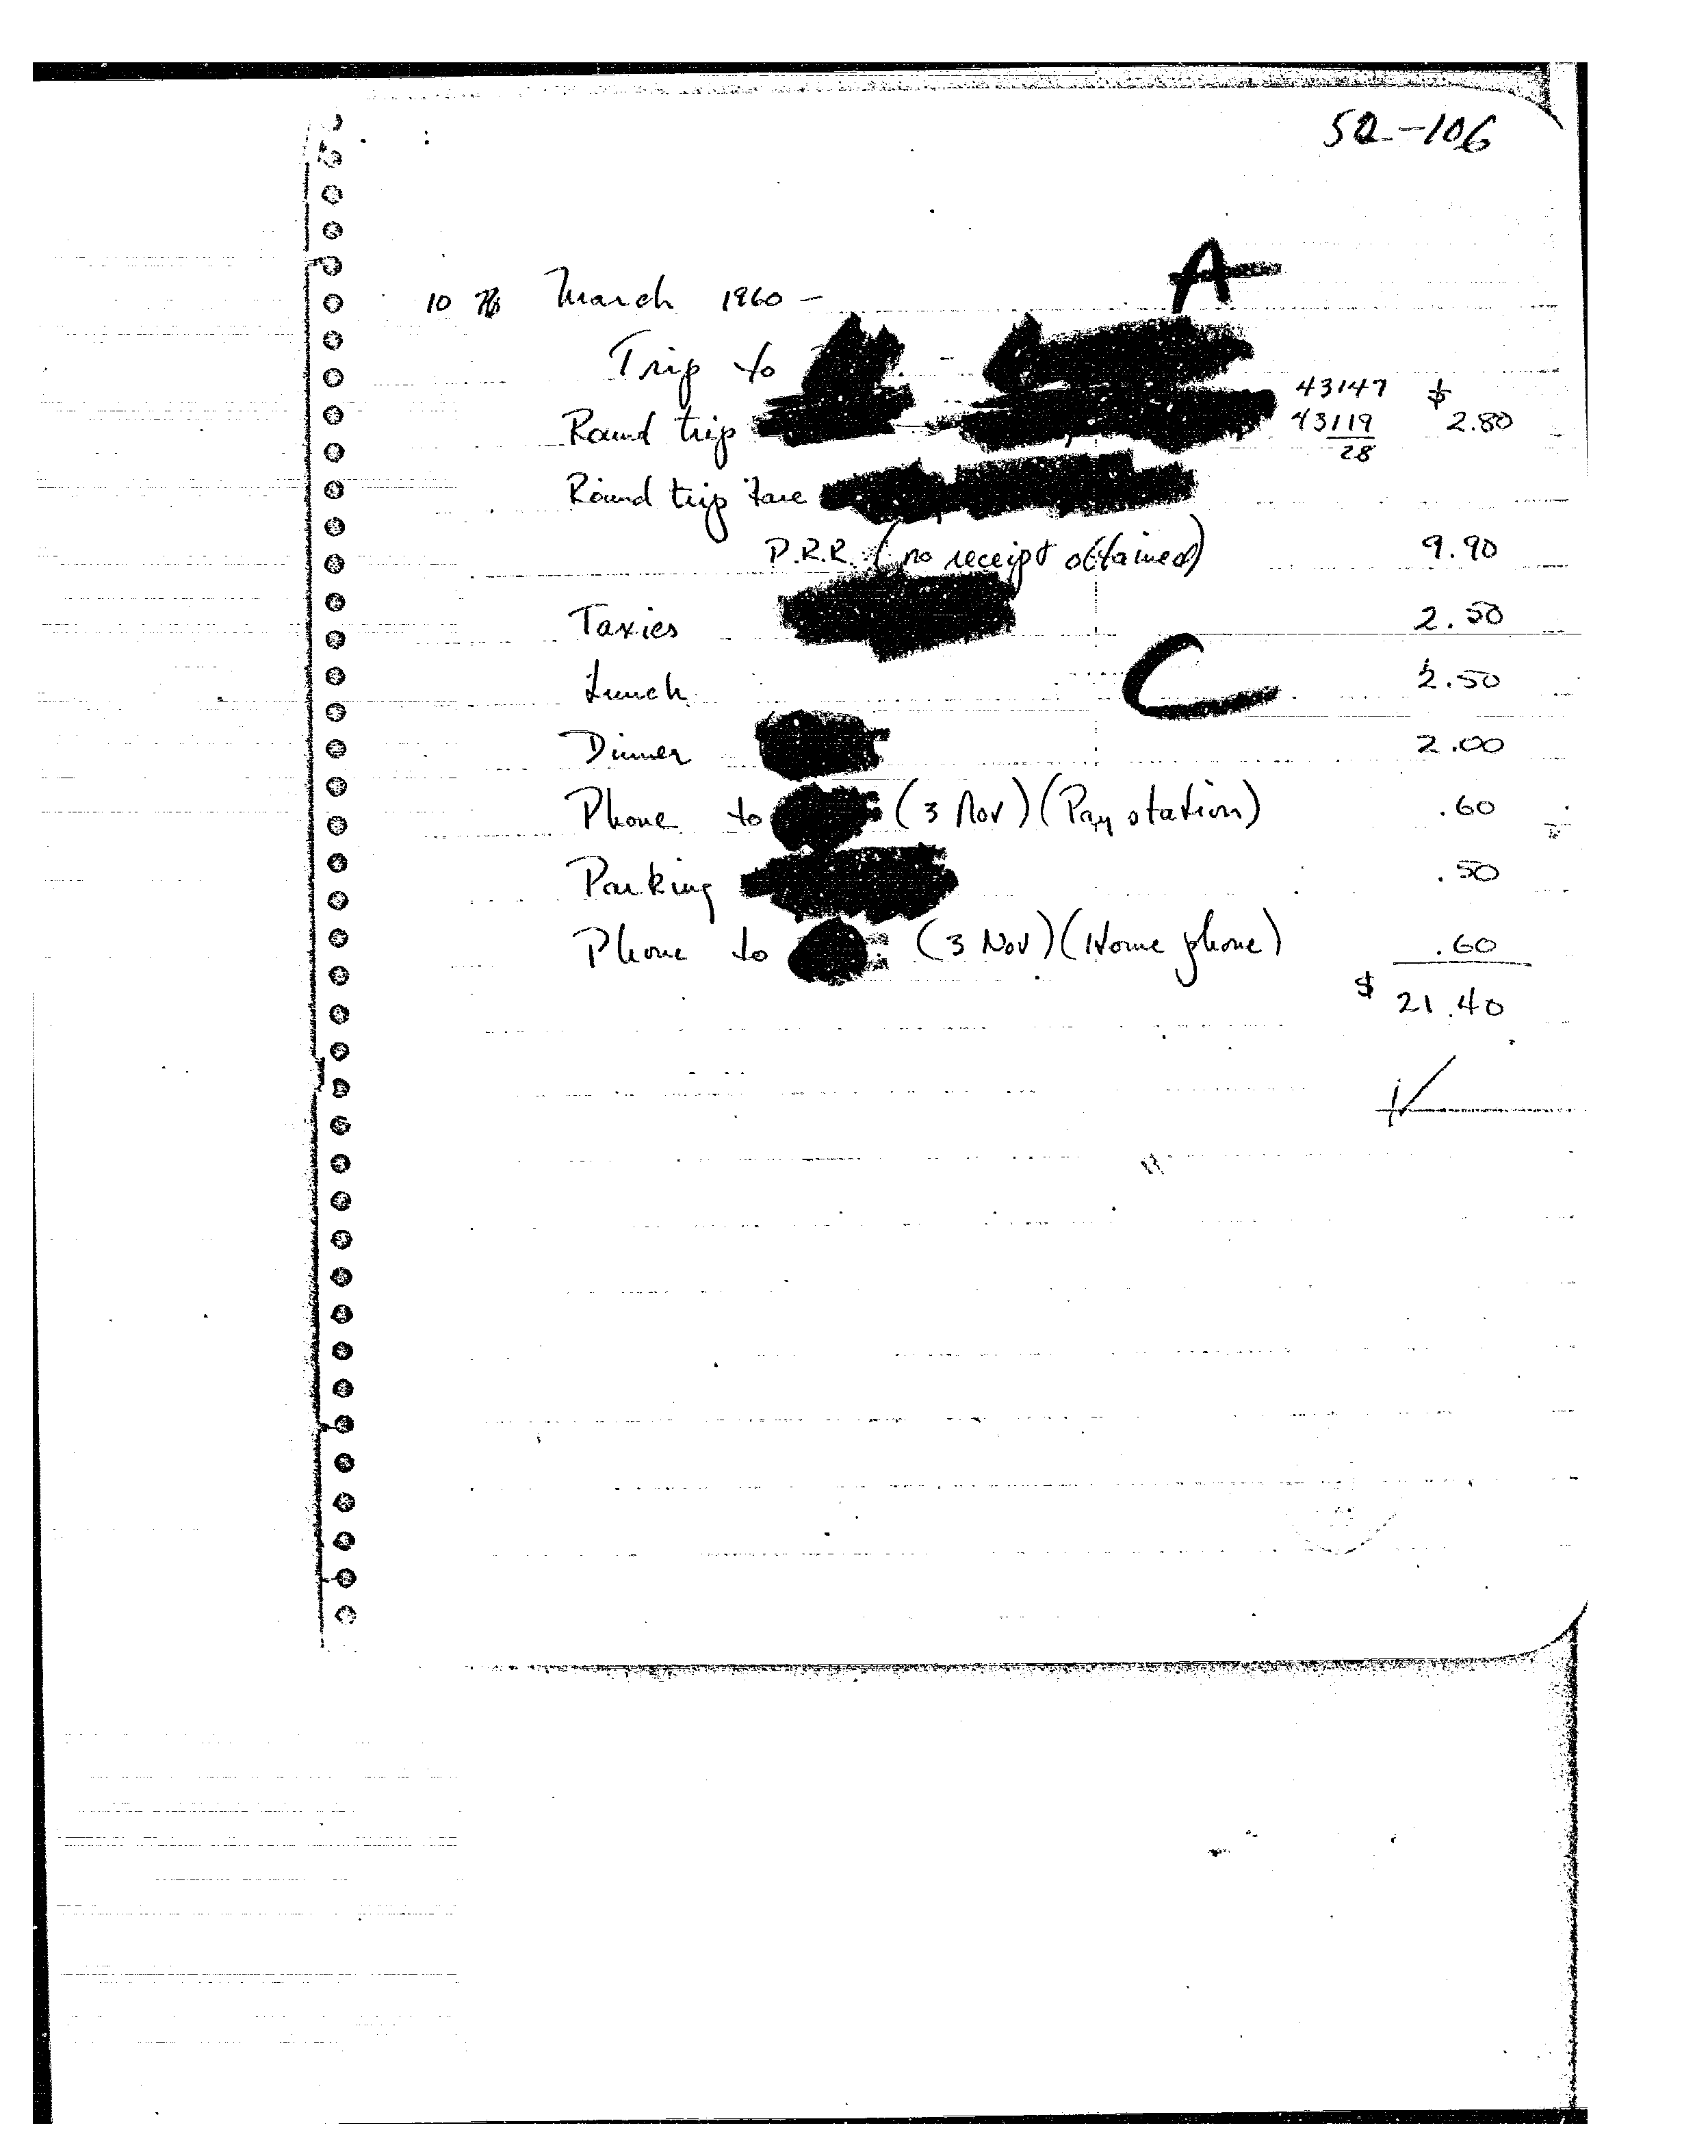 52-106
A
10 th March 1960 -
Trip to -
43147 $
Round trip - 43119 2.80
28
Round trip fare
P.R.R. (no receipt obtained) 9.90
Taxies 2.50
Lunch C 2.50
Dinner 2.00
Phone to (3 Nov) (Pay station) .60
Parking .50
Phone to (3 Nov) (Home phone) .60
$ 21.40